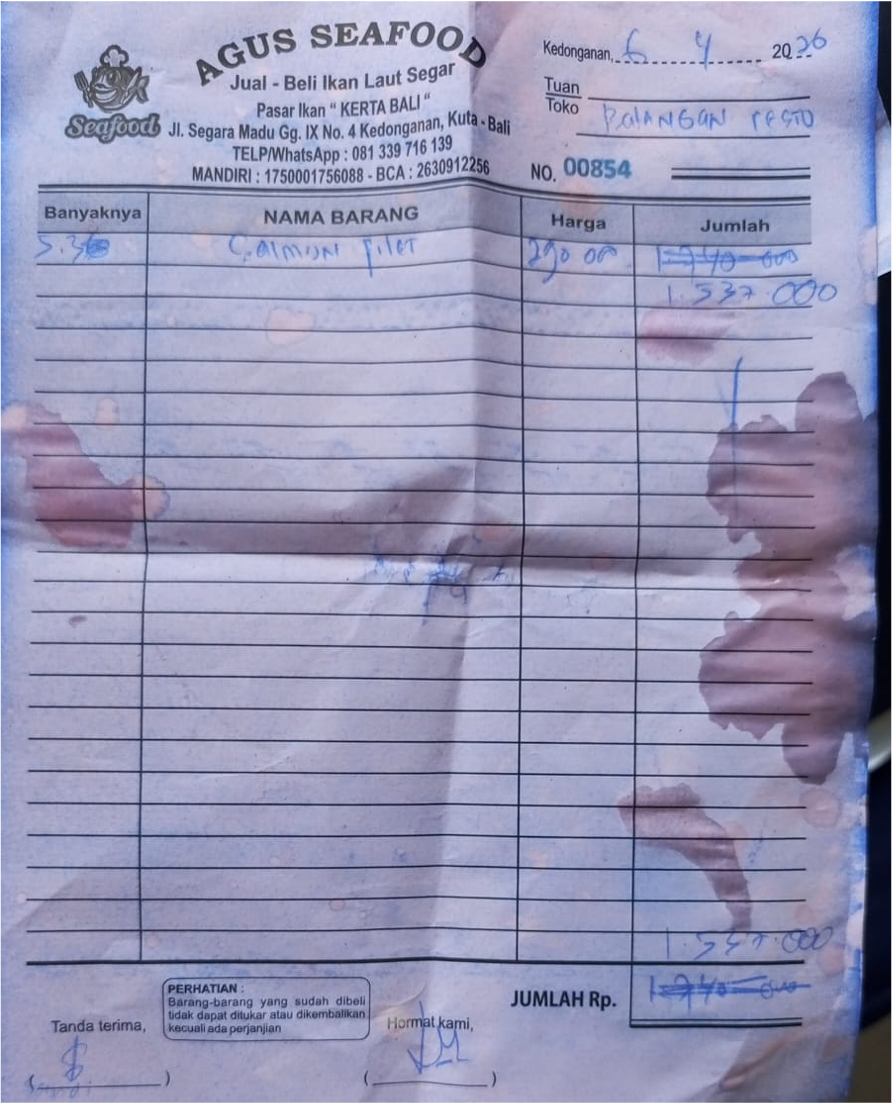 AGUS SEAFOOD
Jual - Beli Ikan Laut Segar
Pasar Ikan " KERTA BALI "
Jl. Segara Madu Gg. IX No. 4 Kedonganan, Kuta - Bali
TELP/WhatsApp : 081 339 716 139
MANDIRI : 1750001756088 - BCA : 2630912256
Seafood
Kedonganan, 6 4 2026
Tuan
Toko
BALANGAN RESTO
NO. 00854
Banyaknya NAMA BARANG Harga Jumlah
5.3 Salmon filet 290 000
1.537.000
1.537.000
JUMLAH Rp.
PERHATIAN :
Barang-barang yang sudah dibeli
tidak dapat ditukar atau dikembalikan
kecuali ada perjanjian
Tanda terima, Hormat kami,